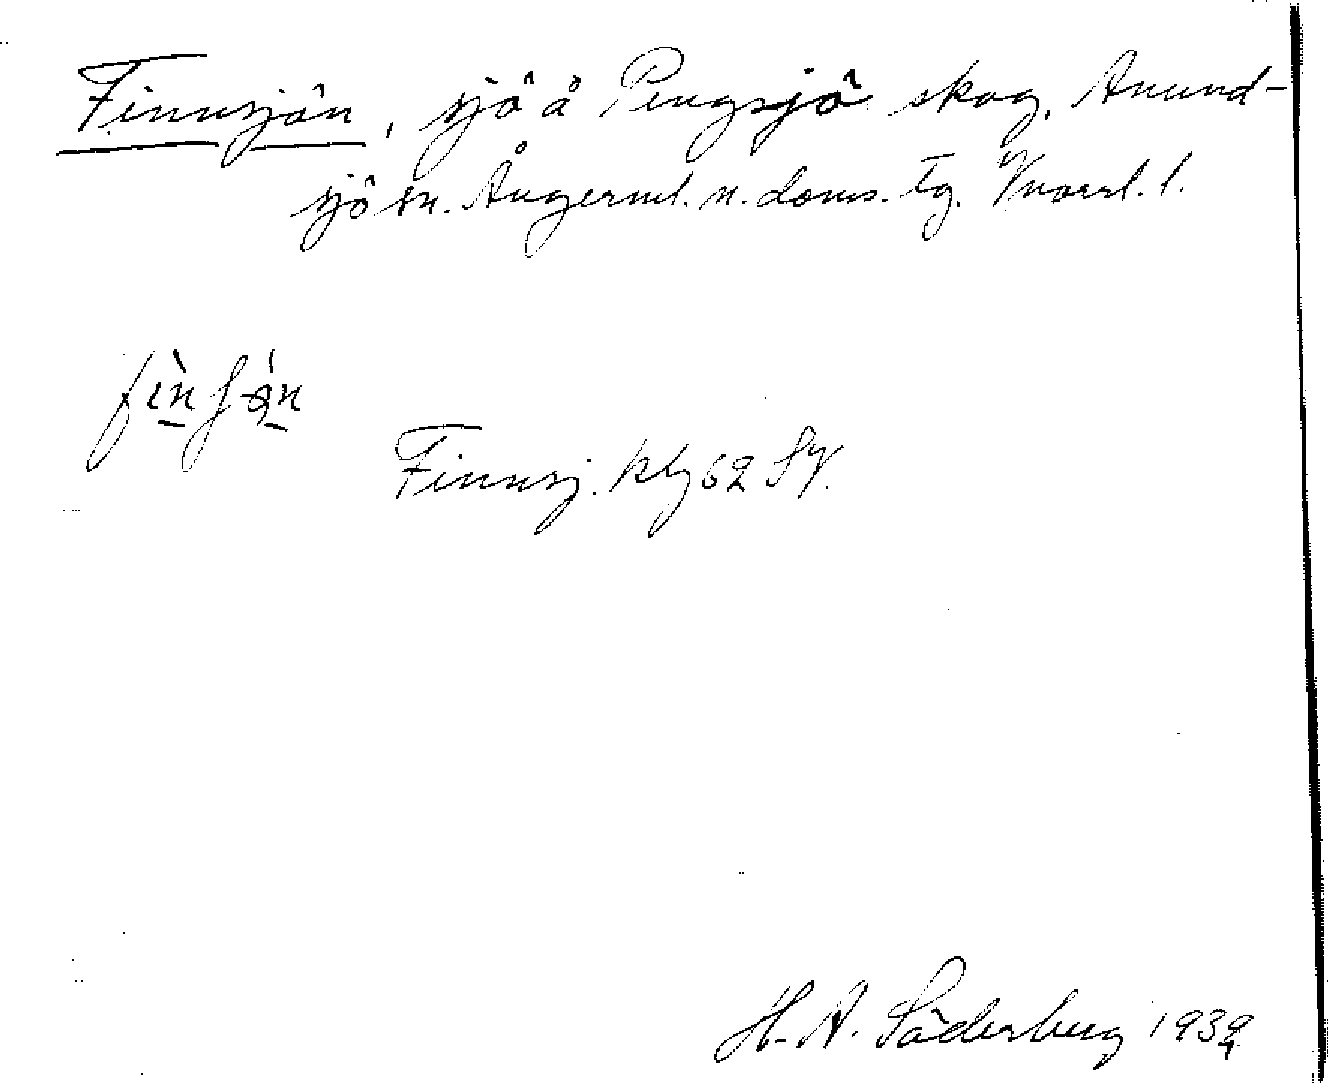 Finnsjön, sjö å Pengsjö skog, Anund-
sjö sn. Ångerml. n. doms. tg. Vnorrl. l.
Finnsj. klg 62 SV.
H. A. Söderberg 1939